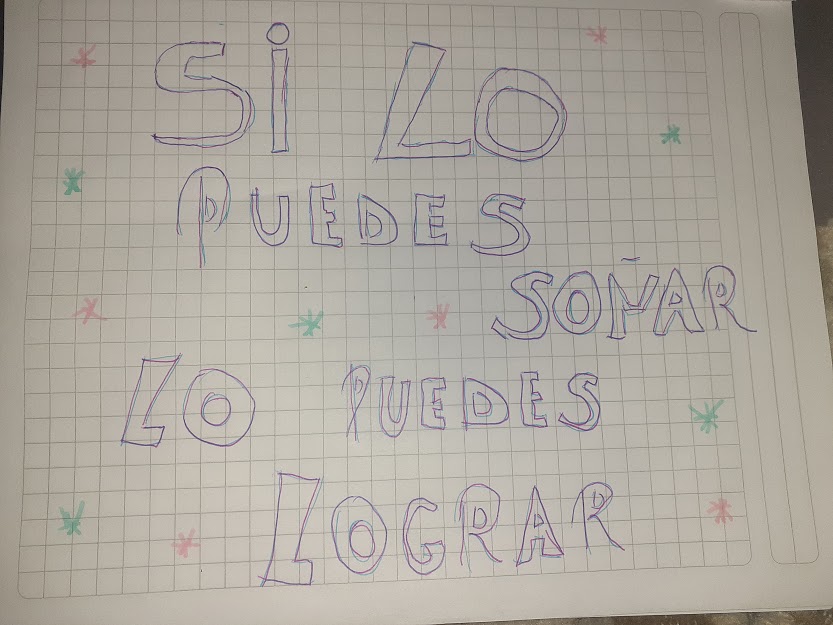 SI LO
PUEDES
SOÑAR
LO PUEDES
LOGRAR